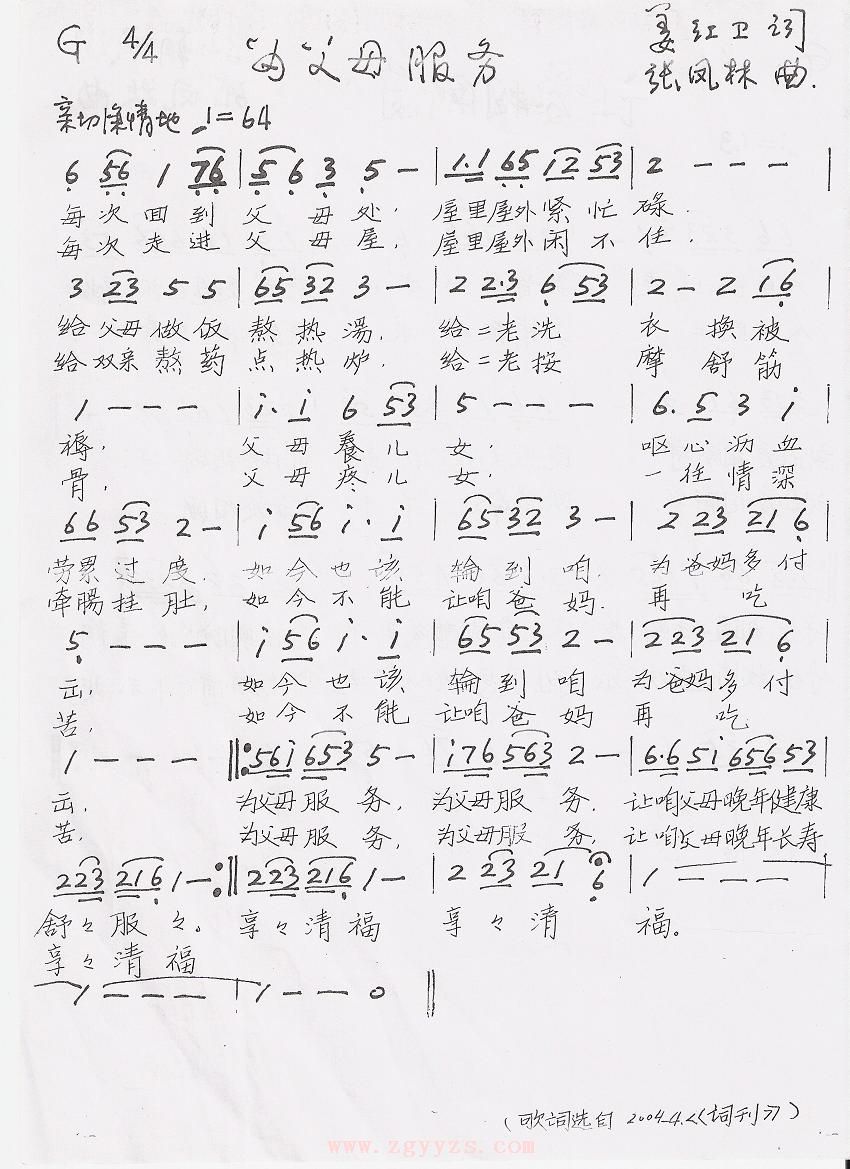 G 4/4 为父母服务 姜红卫 词
张凤林 曲.
亲切深情地 ♩=64
6 56 1 76 | 5 6 3 5 — | 1.1 65 12 53 | 2 — — — |
每次回到父母处, 屋里屋外紧忙碌.
每次走进父母屋, 屋里屋外闲不住,
3 23 5 5 | 65 32 3 — | 2 2.3 6 53 | 2 — 2 16 |
给父母做饭熬热湯, 给二老洗衣换被
给双亲熬药点热炉, 给二老按摩舒筋
1 — — — | i. i 6 53 | 5 — — — | 6. 5 3 i |
褥, 父母養儿女, 呕心沥血
骨, 父母疼儿女, 一往情深
66 53 2 — | i 56 i. i | 65 32 3 — | 2 23 21 6 |
劳累过度. 如今也该轮到咱. 为爸妈多付
牵腸挂肚, 如今不能让咱爸妈. 再吃
5 — — — | i 56 i. i | 65 53 2 — | 2 23 21 6 |
出, 如今也该轮到咱 为爸妈多付
苦, 如今不能让咱爸妈 再吃
1 — — — ‖: 56i 653 5 — | i76 563 2 — | 6.6 5i 656 53 |
出, 为父母服务, 为父母服务. 让咱父母晚年健康
苦, 为父母服务, 为父母服务, 让咱父母晚年长寿
223 216 1 — :‖ 223 216 1 — | 2 23 21 6 | 1 — — — |
舒々服々。 享々清福 享々清福。
享々清福
1 — — — | 1 — — 0 ‖
(歌词选自 2004.4.《词刊》)
www.zgyyzs.com